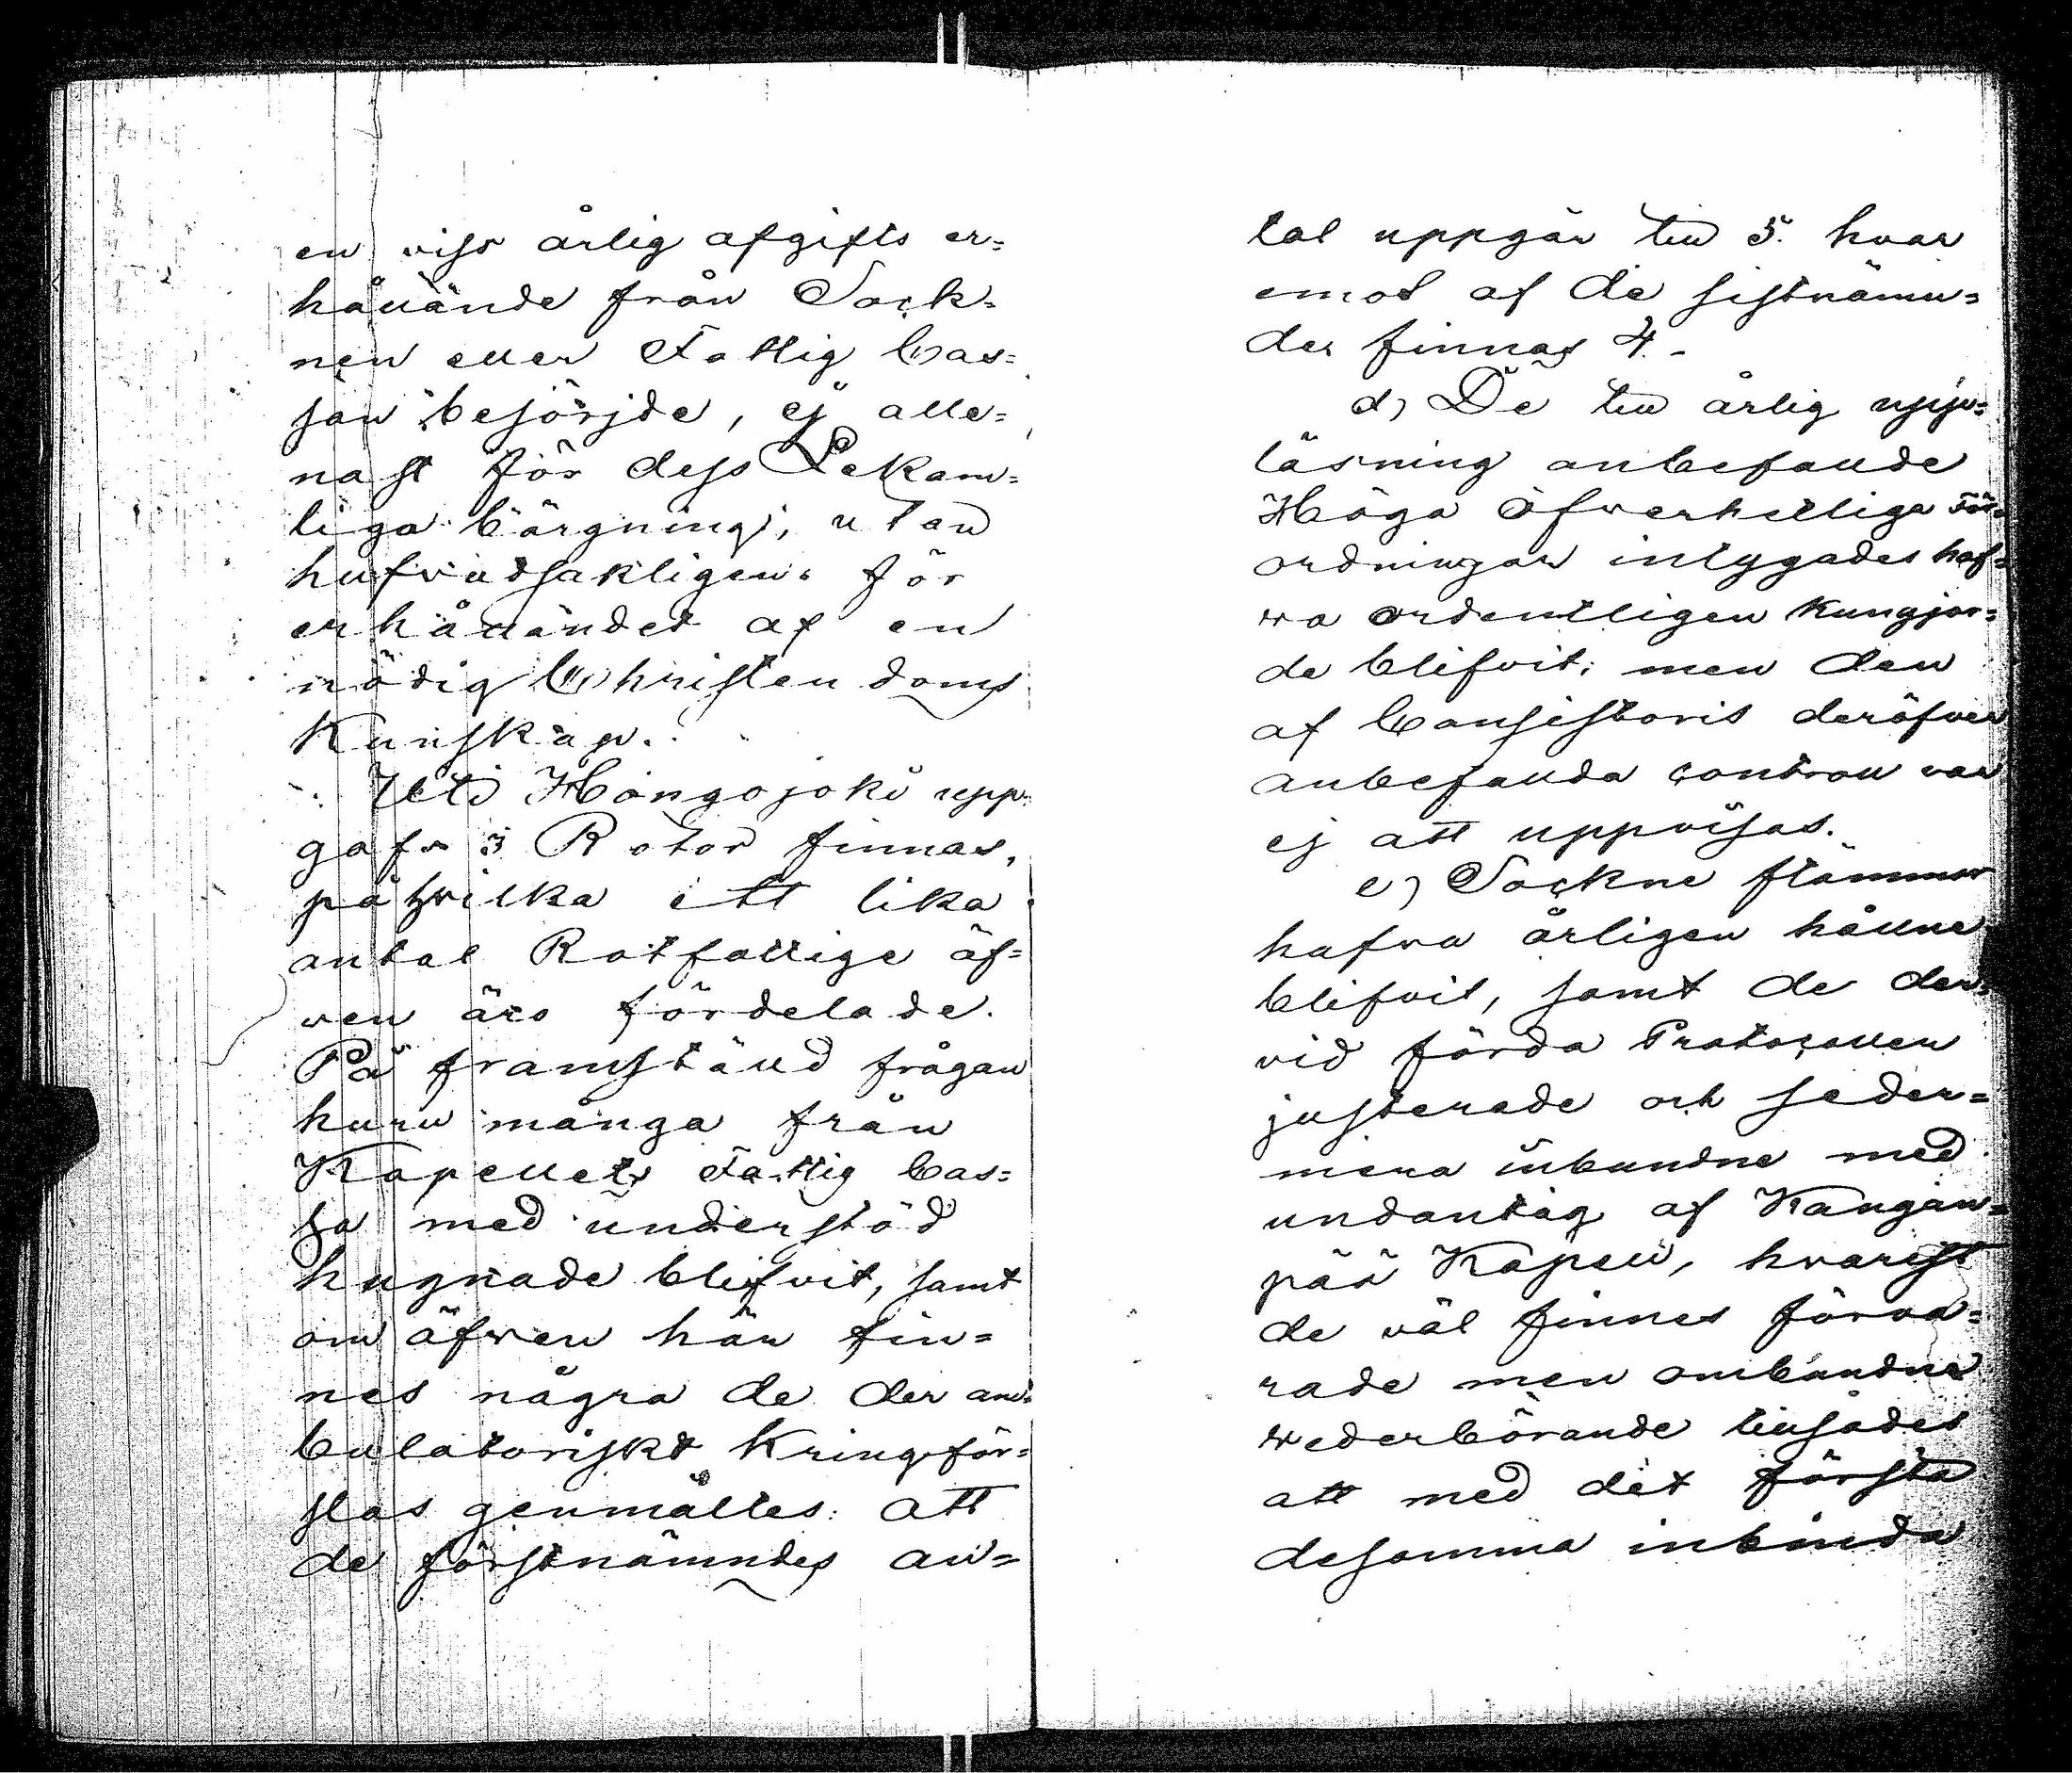 en viss årlig afgifts er=
hållande från Sock=
nen eller Fattig Cas=
san besörjde, ej alle=
nast för dess Lekam=
liga bärgning, utan
hufvudsakligen för
erhållandet af en
nödig Christendoms
Kunskap.
Uti Hongojoki upp=
gafs 3 Rotor finnas,
på hvilka ett lika
antal Rotfattige äf=
ven äro fördelade.
På framställd frågan
huru många från
Kapellets Fattig Cas=
sa med understöd
hugnade blifvit, samt
om äfven här fin=
nes några de der am=
bulatoriskt Kringför=
slas genmältes: att
de förstnämndes an=
tal uppgår till 5. hvar
emot af de sistnämn=
des finnas 4.-
d) De till årlig upp=
läsning anbefallde
Höga Öfverhetliga För=
ordningar intygades haf=
va ordentligen Kungjor=
de blifvit; men den
af Consistoris deröfver
anbefallda controll var
ej att uppvisas.
e) Sockne stämmor
hafva årligen hållne
blifvit, samt de der=
vid förda Protocollen
justerade och seder=
mera inbundne med
undantag af Kangan=
pää Kapell, hvarest
de väl finnes förva=
rade men ombundne
vederbörande tillsades
att med det första
desamma inbinda